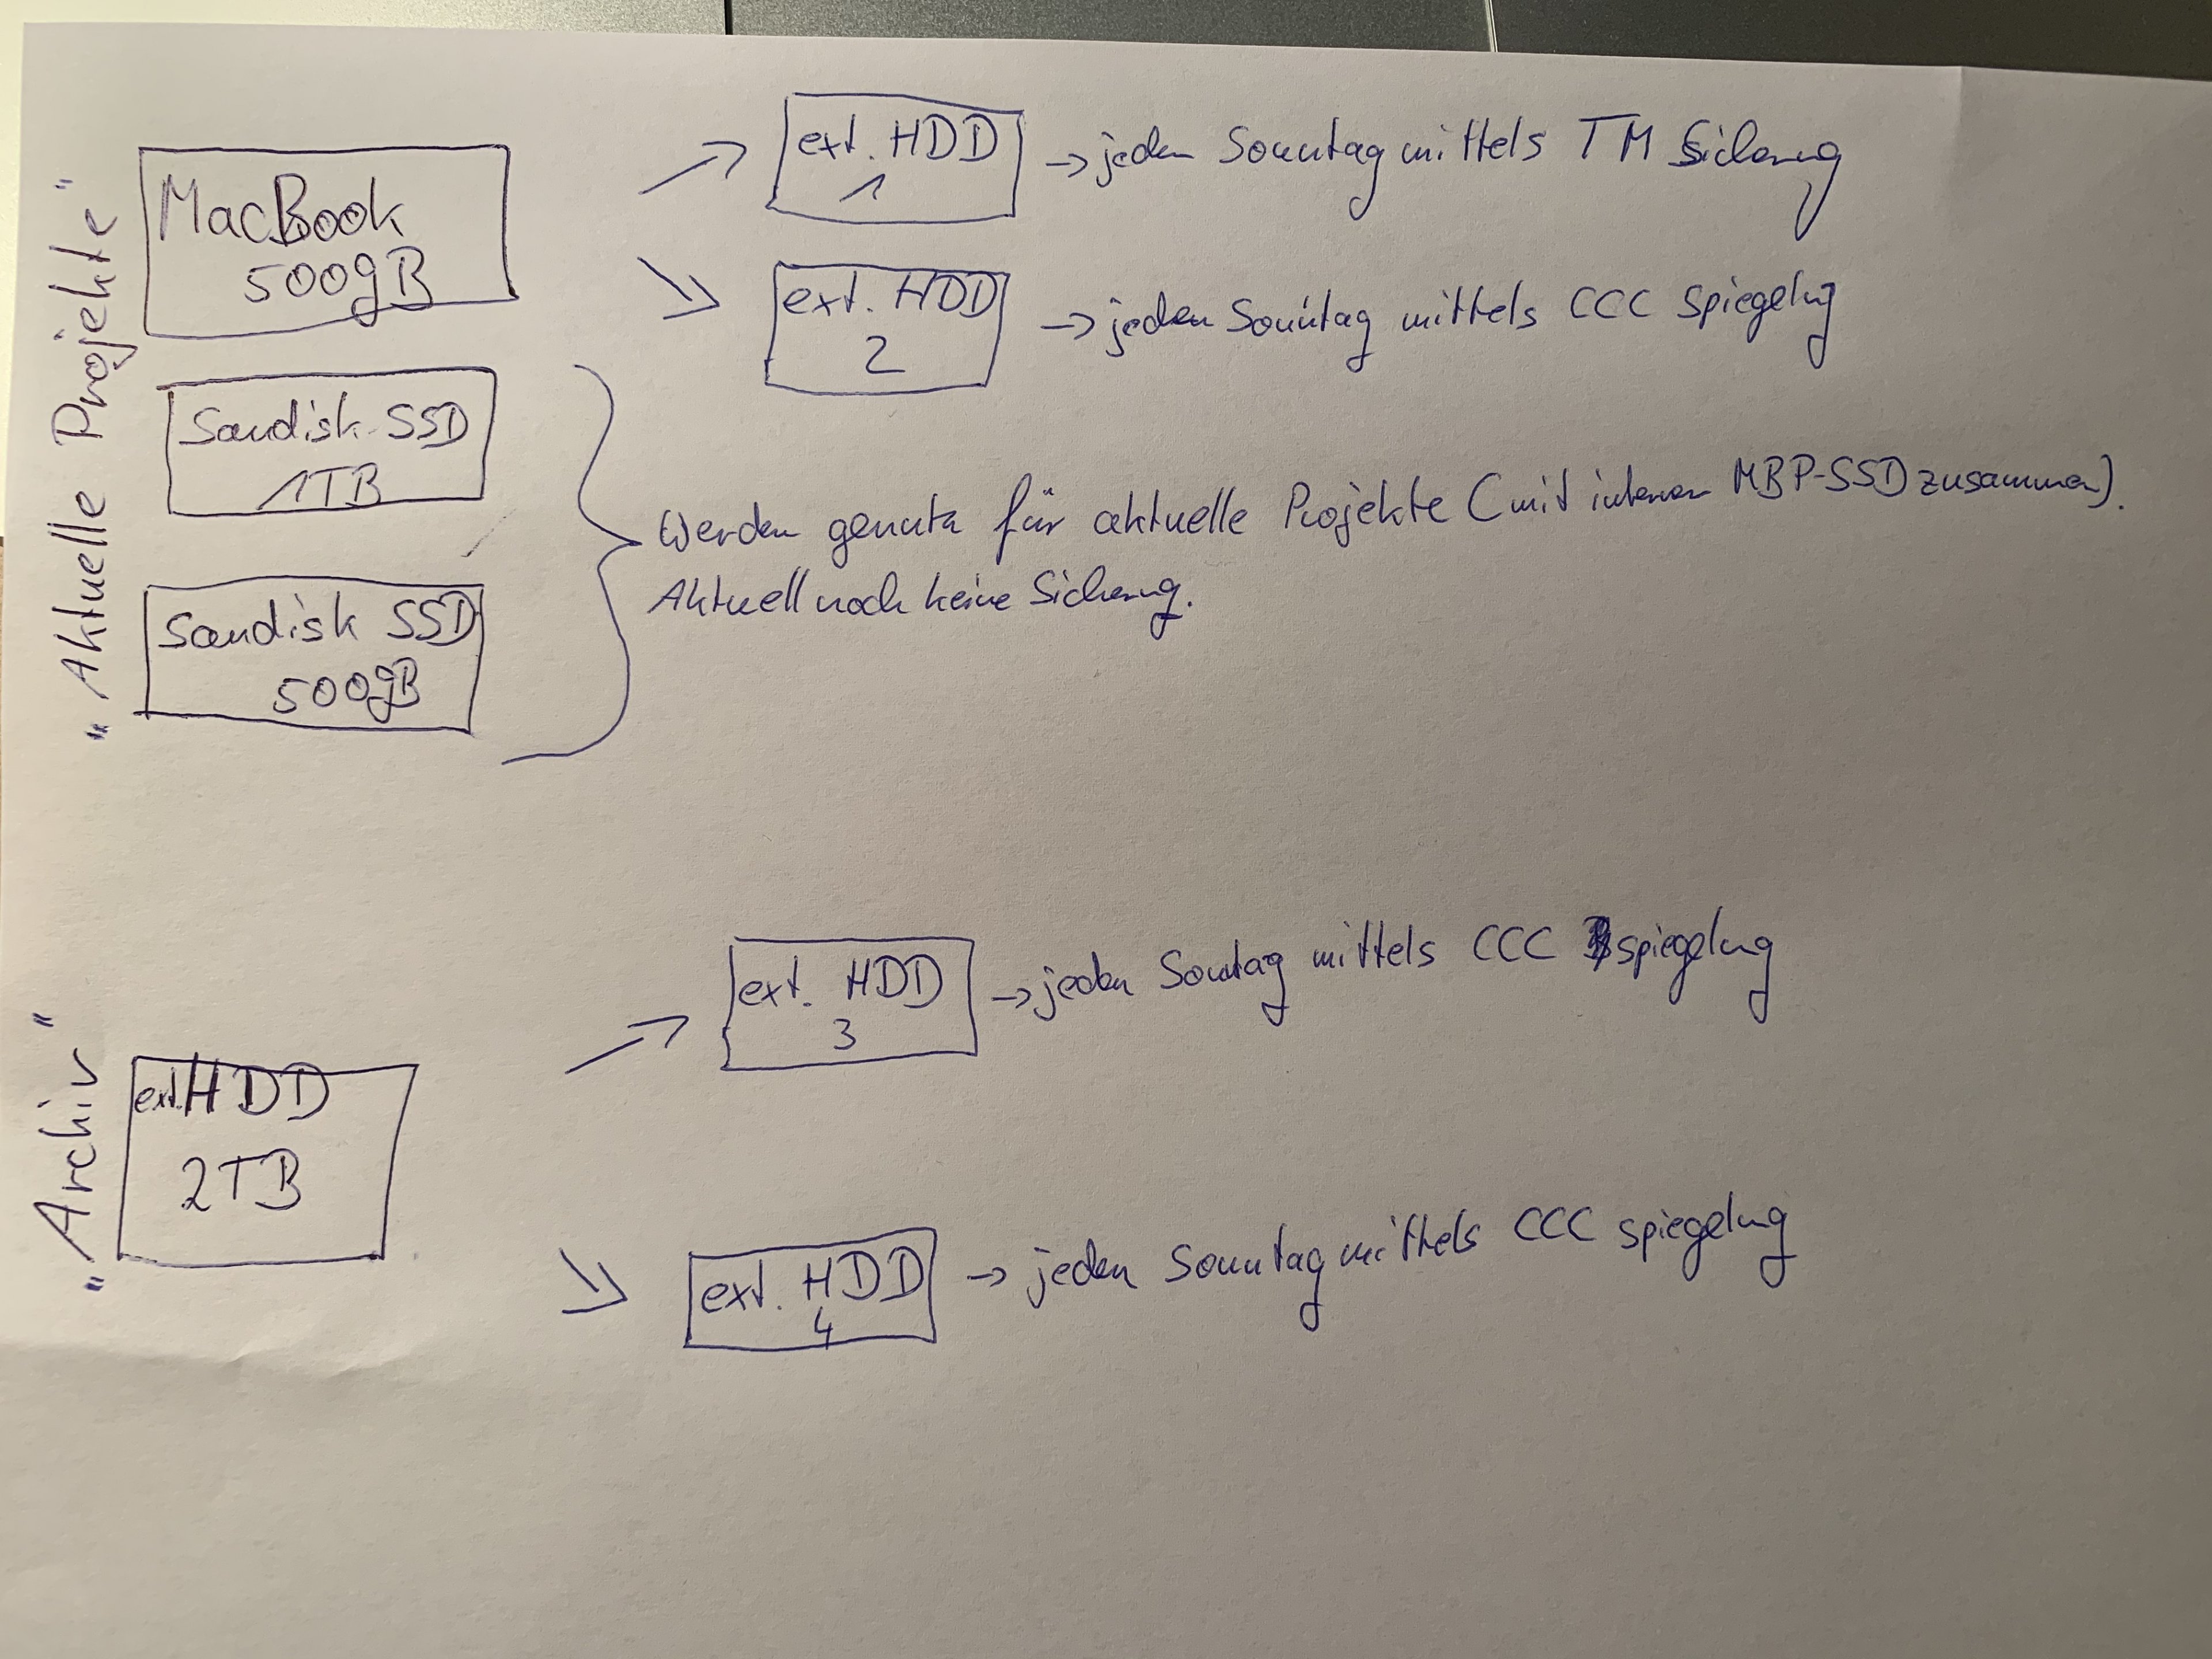 "Aktuelle Projekte"
MacBook
500gB
ext. HDD
1
→ jeden Sonntag mittels TM Sicherung
ext. HDD
2
→ jeden Sonntag mittels CCC Spiegelung
Sandisk SSD
1TB
Sandisk SSD
500gB
Werden genutzt für aktuelle Projekte (mit interner MBP-SSD zusammen).
Aktuell noch keine Sicherung.
"Archiv"
ext. HDD
2TB
ext. HDD
3
→ jeden Sonntag mittels CCC spiegelung
ext. HDD
4
→ jeden Sonntag mittels CCC spiegelung